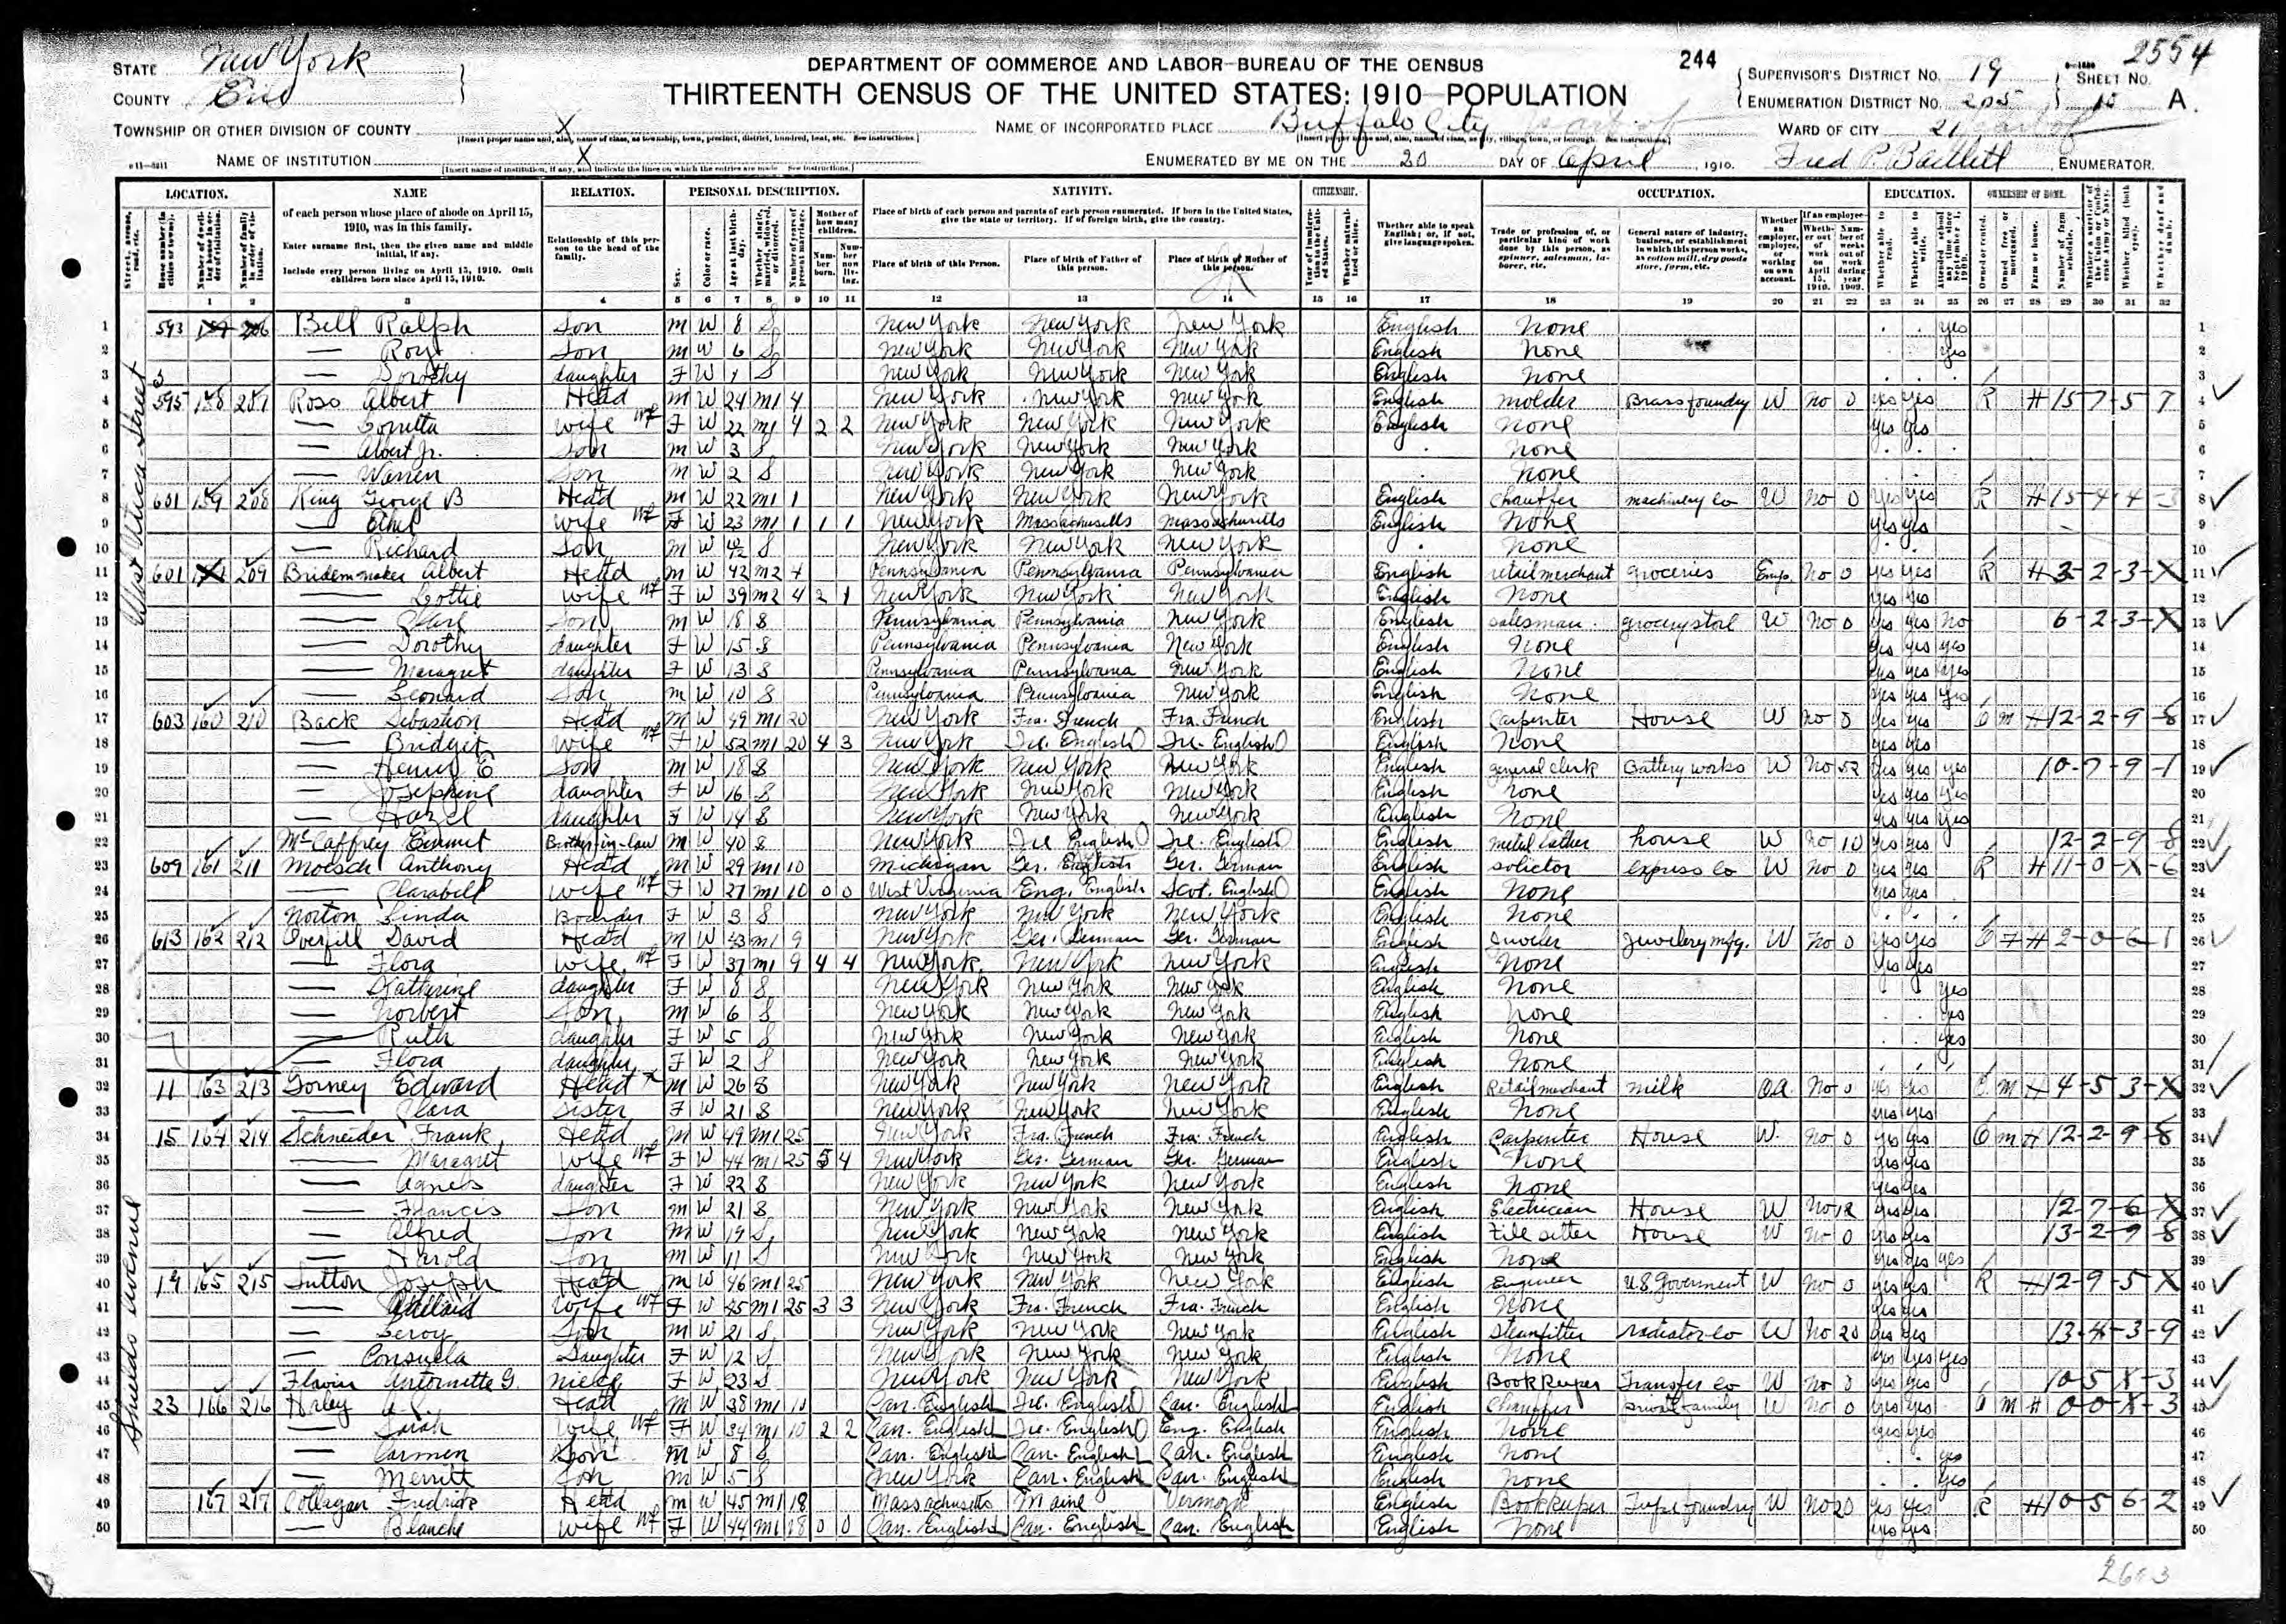 2554
STATE New York
COUNTY Erie
DEPARTMENT OF COMMERCE AND LABOR—BUREAU OF THE CENSUS
244
SUPERVISOR'S DISTRICT No. 19
SHEET No.
THIRTEENTH CENSUS OF THE UNITED STATES: 1910—POPULATION
ENUMERATION DISTRICT No. 205
15 A.
TOWNSHIP OR OTHER DIVISION OF COUNTY X
NAME OF INCORPORATED PLACE Buffalo City part of
WARD OF CITY 21 part of
NAME OF INSTITUTION X
ENUMERATED BY ME ON THE 20 DAY OF April, 1910. Fred P. Bartlett, ENUMERATOR.
LOCATION. NAME RELATION. PERSONAL DESCRIPTION. NATIVITY. CITIZENSHIP. OCCUPATION. EDUCATION. OWNERSHIP OF HOME.
of each person whose place of abode on April 15, 1910, was in this family.
Enter surname first, then the given name and middle initial, if any.
Include every person living on April 15, 1910. Omit children born since April 15, 1910.
Relationship of this person to the head of the family.
Place of birth of each person and parents of each person enumerated. If born in the United States, give the state or territory. If of foreign birth, give the country.
Place of birth of this Person. Place of birth of Father of this person. Place of birth of Mother of this person.
Whether able to speak English; or, if not, give language spoken.
1 2 3 4 5 6 7 8 9 10 11 12 13 14 15 16 17 18 19 20 21 22 23 24 25 26 27 28 29 30 31 32
West Utica Street
1 593 Bell Ralph Son M W 8 S New York New York New York English None yes 1
2 — Roy Son M W 6 S New York New York New York English None yes 2
3 — Dorothy daughter F W 1 S New York New York New York English None 3
4 595 158 207 Ross Albert Head M W 24 M1 4 New York New York New York English molder Brass foundry W No 0 yes yes R H 15-7-5-7 4
5 — Loretta wife F W 22 M1 4 2 2 New York New York New York English None yes yes 5
6 — Albert Jr. Son M W 3 S New York New York New York None 6
7 — Warren Son M W 2 S New York New York New York None 7
8 601 159 208 King George B Head M W 22 M1 1 New York New York New York English Chauffer machinery Co W No 0 yes yes R H 15-4-4-3 8
9 — Ethel wife F W 23 M1 1 1 1 New York Massachusetts Massachusetts English None yes yes 9
10 — Richard Son M W S New York New York New York None 10
11 601 209 Bridemonaker Albert Head M W 42 M2 4 Pennsylvania Pennsylvania Pennsylvania English retail merchant groceries Emp. No 0 yes yes R H 3-2-3-X 11
12 — Lottie wife F W 39 M2 4 2 1 New York New York New York English None yes yes 12
13 — Son M W 18 S Pennsylvania Pennsylvania New York English salesman grocery store W No 0 yes yes No 6-2-3-X 13
14 — Dorothy daughter F W 15 S Pennsylvania Pennsylvania New York English None yes yes yes 14
15 — Maragret daughter F W 13 S Pennsylvania Pennsylvania New York English None yes yes yes 15
16 — Leonard Son M W 10 S Pennsylvania Pennsylvania New York English None yes yes yes 16
17 603 160 210 Back Sebastion Head M W 49 M1 20 New York Fra. French Fra. French English Carpenter House W No 0 yes yes O M H 12-2-9-8 17
18 — Bridget wife F W 52 M1 20 4 3 New York Ire. English Ire. English English None yes yes 18
19 — Henry E Son M W 18 S New York New York New York English general clerk Battery works W No 52 yes yes yes 10-7-9-1 19
20 — Josephine daughter F W 16 S New York New York New York English None yes yes yes 20
21 — Hazel daughter F W 14 S New York New York New York English None yes yes yes 21
22 McCaffrey Emmet Brother-in-law M W 40 S New York Ire English Ire. English English metal lather house W No 10 yes yes 12-2-9-8 22
23 609 161 211 Moesch Anthony Head M W 29 M1 10 Michigan Ger. Ger. German English solictor express Co W No 0 yes yes R H 11-0-X-6 23
24 — Clarabell wife F W 27 M1 10 0 0 West Virginia Eng. English Scot. English English None yes yes 24
25 Norton Linda Boarder F W 3 S New York New York New York English None 25
26 613 162 212 Overfill David Head M W 43 M1 9 New York Ger. German Ger. German English Jeweler Jewelery mfg. W No 0 yes yes O F H 2-0-6-1 26
27 — Flora wife F W 37 M1 9 4 4 New York New York New York English None yes yes 27
28 — Katherine daughter F W 8 S New York New York New York English None yes 28
29 — Norbert Son M W 6 S New York New York New York English None yes 29
30 — Ruth daughter F W 5 S New York New York New York English None yes 30
31 — Flora daughter F W 2 S New York New York New York English None 31
Shields Avenue
32 11 163 213 Gorney Edward Head M W 26 S New York New York New York English Retail merchant milk OA No 0 yes yes O M H 4-5-3-X 32
33 — Clara Sister F W 21 S New York New York New York English None yes yes 33
34 15 164 214 Schneider Frank Head M W 49 M1 25 New York Fra. French Fra. French English Carpenter House W No 0 yes yes O M H 12-2-9-8 34
35 — Maragret wife F W 44 M1 25 5 4 New York Ger. German Ger. German English None yes yes 35
36 — Agnes daughter F W 22 S New York New York New York English None yes yes 36
37 — Francis Son M W 21 S New York New York New York English Electrician House W No 12 yes yes 12-7-6-X 37
38 — Alfred Son M W 19 S New York New York New York English Tile setter House W No 0 yes yes 13-2-9-8 38
39 — Harold Son M W 11 S New York New York New York English None yes yes yes 39
40 19 165 215 Sutton Joseph Head M W 46 M1 25 New York New York New York English Engineer U.S. Goverment W No 0 yes yes R H 12-9-5-X 40
41 — wife F W 45 M1 25 3 3 New York Fra. French Fra. French English None yes yes 41
42 — Leroy Son M W 21 S New York New York New York English Steamfitter radiator Co W No 20 yes yes 13-4-3-9 42
43 — Consuela Daughter F W 12 S New York New York New York English None yes yes yes 43
44 Flavin Antoinette G. niece F W 23 S New York New York New York English Book Keeper Transfer Co W No 0 yes yes 10 5 X-3 44
45 23 166 216 Head M W 38 M1 Can. English Ire. English Can. English English Chauffer privat family W No 0 yes yes O M H 0 0-X-3 45
46 — Sarah wife F W 34 M1 10 2 2 Can. English Ire. English Eng. English English None yes yes 46
47 — Carmen Son M W 8 S Can. English Can. English Can. English English None yes 47
48 — Merritt Son M W 5 S New York Can. English Can. English English None yes 48
49 167 217 Collagan Fredrick Head M W 45 M1 18 Massachusetts Maine Vermont English Book Keeper Type foundry W No 20 yes yes R H 10-5 6-2 49
50 — Blanche wife F W 44 M1 18 0 0 Can. English Can. English Can. English English None yes yes 50
2603